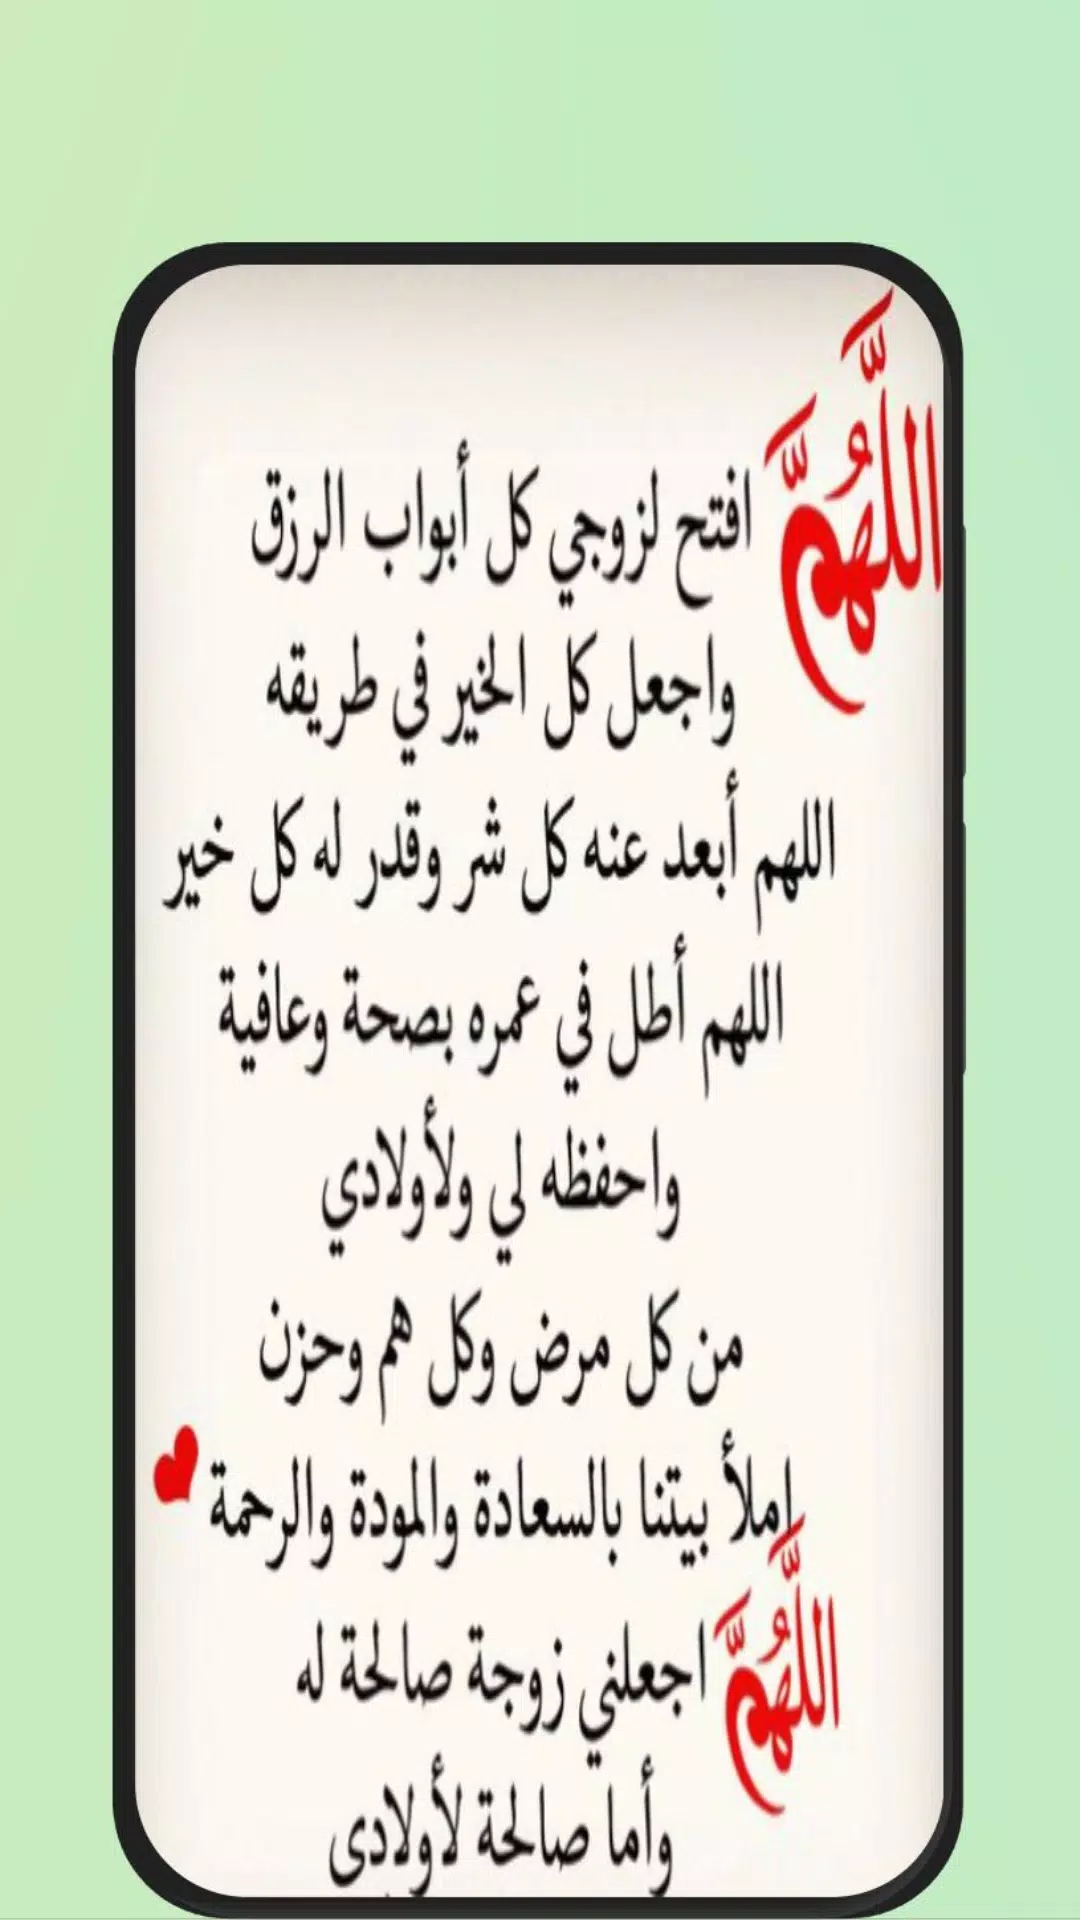 اللَّهُمَّ افتح لزوجي كل أبواب الرزق
واجعل كل الخير في طريقه
اللهم أبعد عنه كل شر وقدر له كل خير
اللهم أطل في عمره بصحة وعافية
واحفظه لي ولأولادي
من كل مرض وكل هم وحزن
إملأ بيتنا بالسعادة والمودة والرحمة
اللَّهُمَّ اجعلني زوجة صالحة له
وأما صالحة لأولادى